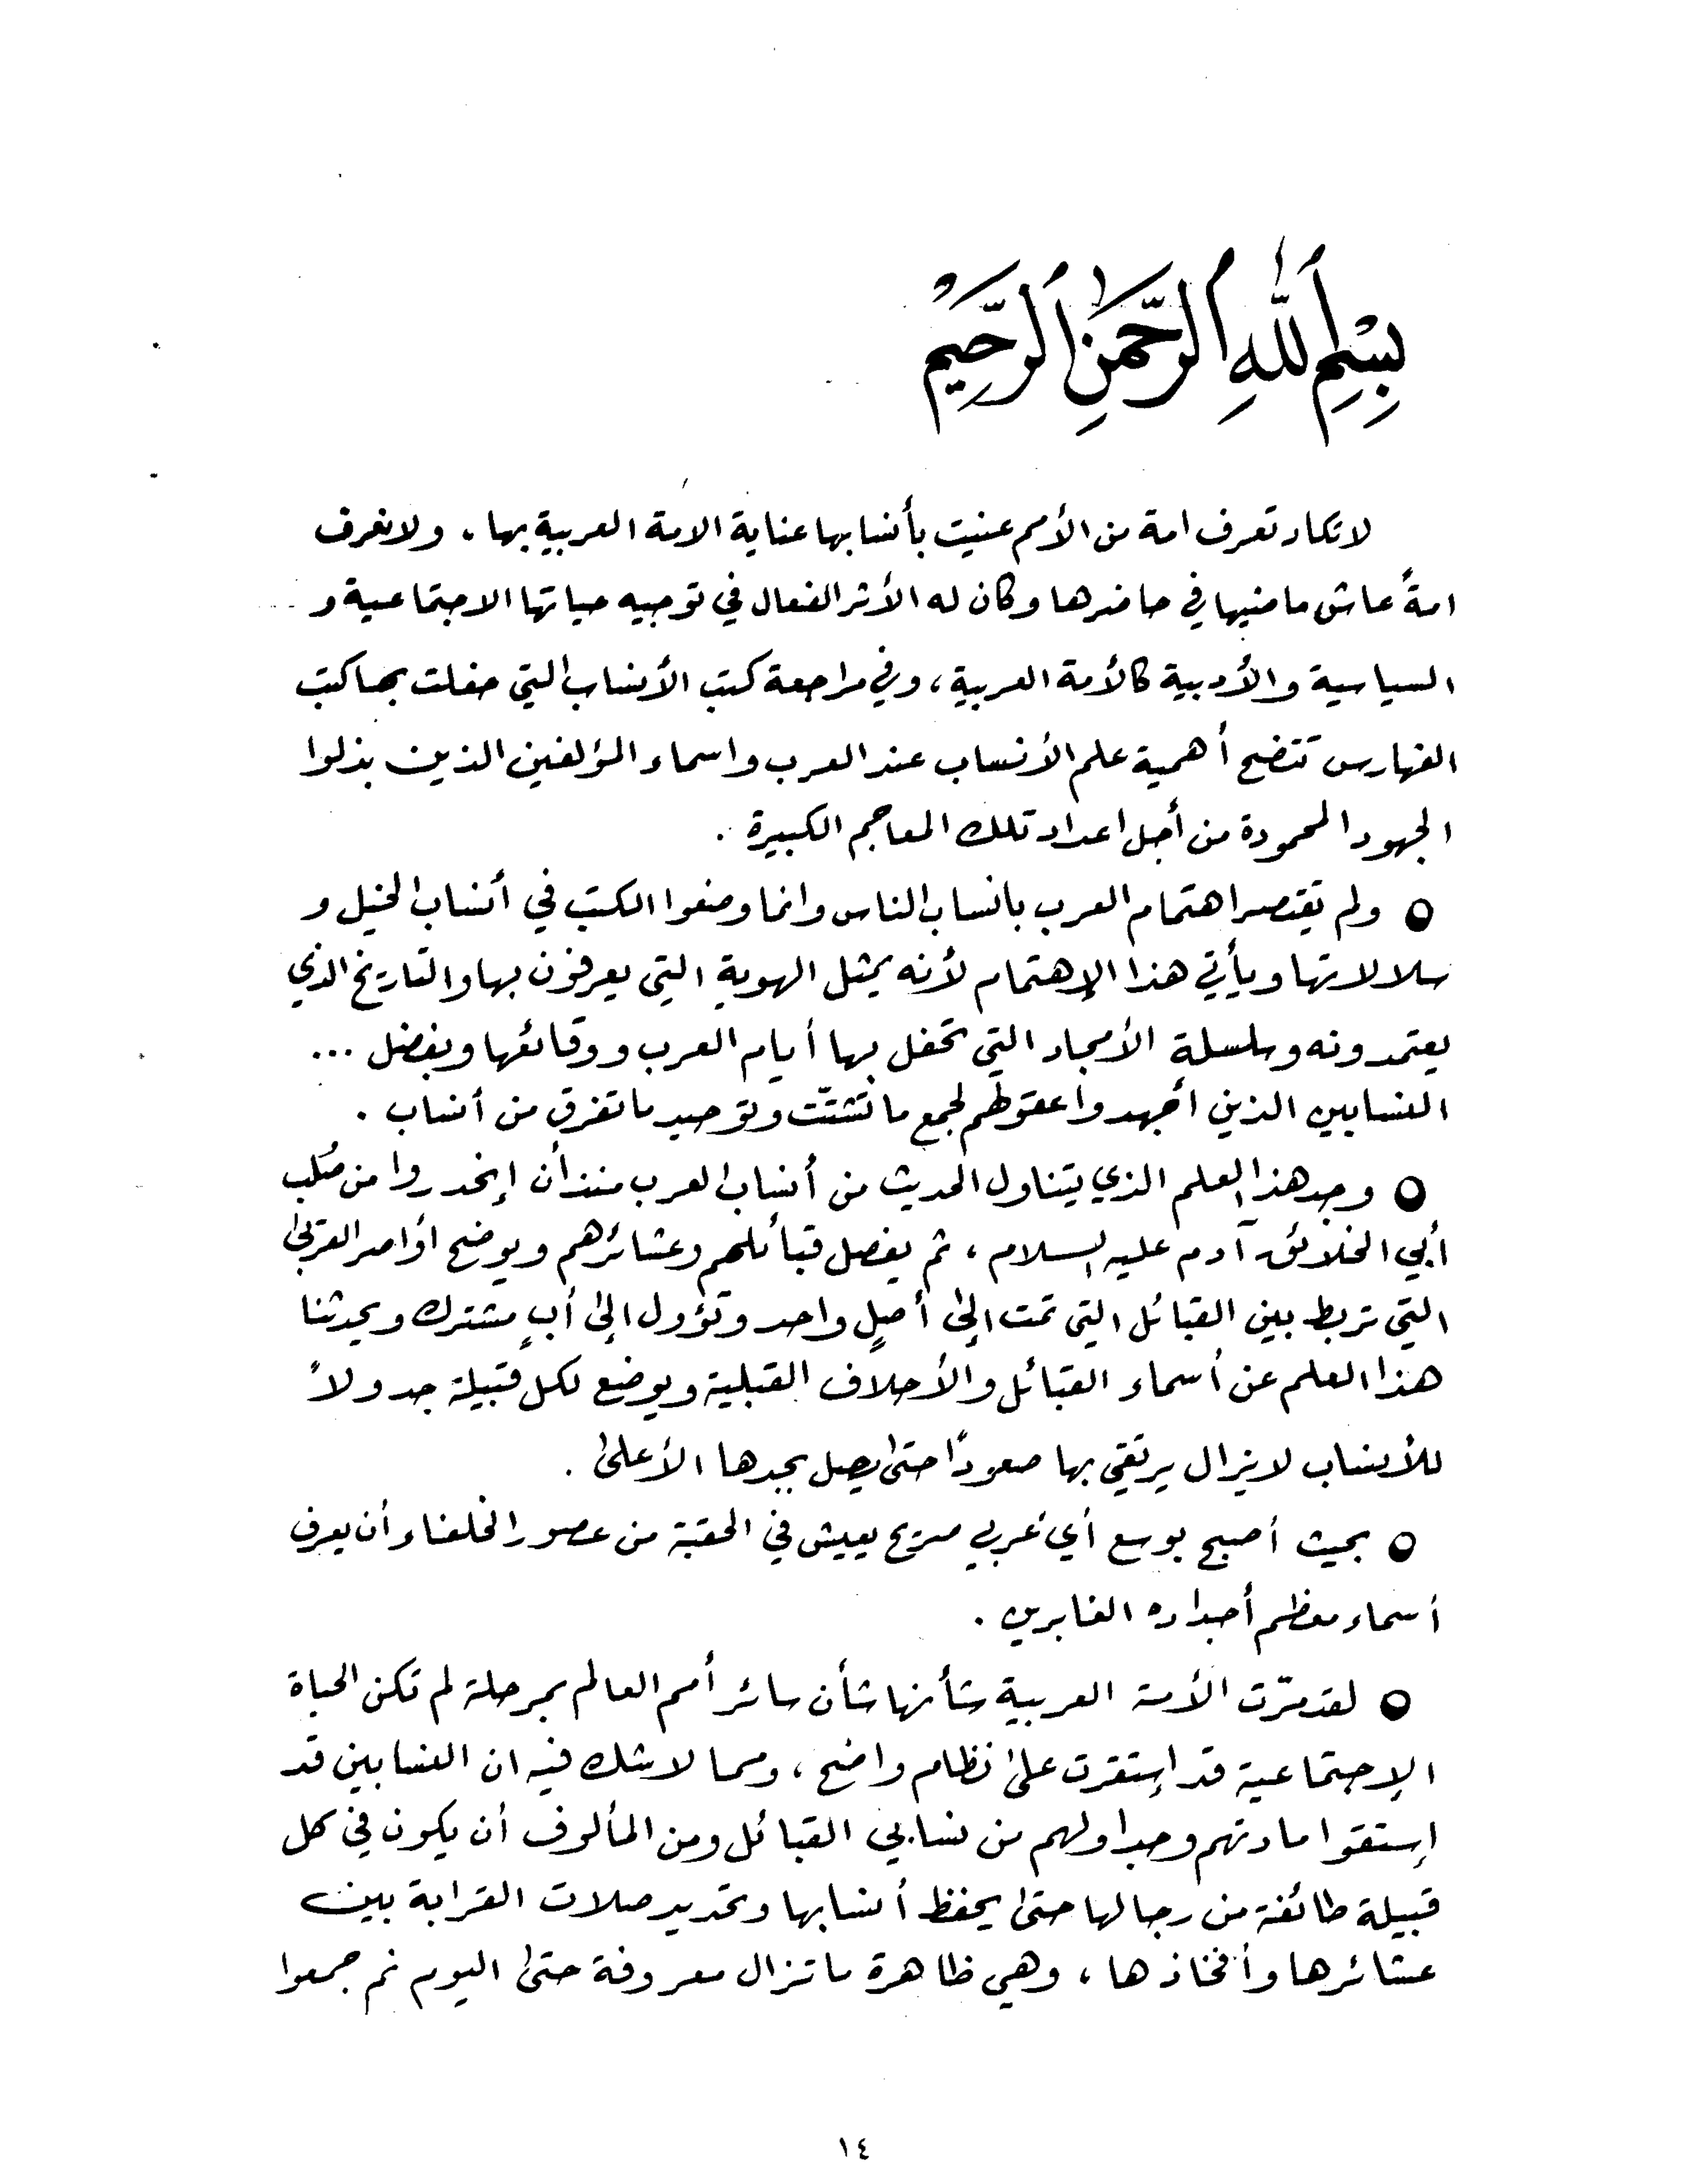 بِسْمِ ٱللَّٰهِ ٱلرَّحْمَٰنِ ٱلرَّحِيمِ
لا تكاد تعرف امة من الأمم عنيت بأنسابها عناية الامة العربية بها، ولا نعرف
امةً عاش ماضيها في حاضرها وكان له الأثر الفعال في توجيه حياتها الاجتماعية و
السياسية والأدبية كالأمة العربية، وفي مراجعة كتب الأنساب التي حفلت بها كتب
الفهارس تتضح أهمية علم الأنساب عند العرب واسماء المؤلفين الذين بذلوا
الجهود المحمودة من أجل اعداد تلك المعاجم الكبيرة .
○ ولم يقتصر اهتمام العرب بانساب الناس وانما وضعوا الكتب في أنساب الخيل و
سلالاتها ويأتي هذا الإهتمام لأنه يمثل الهوية التي يعرفون بها والتاريخ الذي
يعتمدونه وسلسلة الأمجاد التي تحفل بها أيام العرب ووقائعها وبفضل ...
النسابين الذين أجهدوا عقولهم لجمع ما تشتّت وتوحيد ما تفرق من أنساب .
○ وجد هذا العلم الذي يتناول الحديث من أنساب العرب منذ أن إنحدروا من صُلب
أبي الخلائق آدم عليه السلام، ثم يفصل قبائلهم وعشائرهم ويوضح أواصر القربى
التي تربط بين القبائل التي تمت إلى أصلٍ واحد وتؤول إلى أبٍ مشترك ويحدثنا
هذا العلم عن أسماء القبائل والأحلاف القبلية ويوضع لكل قبيلة جدولاً
للأنساب لا يزال يرتقي بها صعودًا حتى يصل بجدها الأعلى .
○ بحيث أصبح بوسع أي عربي صريح يعيش في الحقبة من عصور الخلفاء أن يعرف
أسماء معظم أجداده الغابرين .
○ لقد مرّت الأمة العربية شأنها شأن سائر أمم العالم بمرحلة لم تكن الحياة
الإجتماعية قد إستقرت على نظام واضح، ومما لاشك فيه ان النسابين قد
إستقوا مادتهم وجداولهم من نسابي القبائل ومن المألوف أن يكون في كل
قبيلة طائفة من رجالها حتى يحفظ أنسابها وتحديد صلات القرابة بين
عشائرها وأفخاذها، وهي ظاهرة ما تزال معروفة حتى اليوم ثم جمعوا
١٤